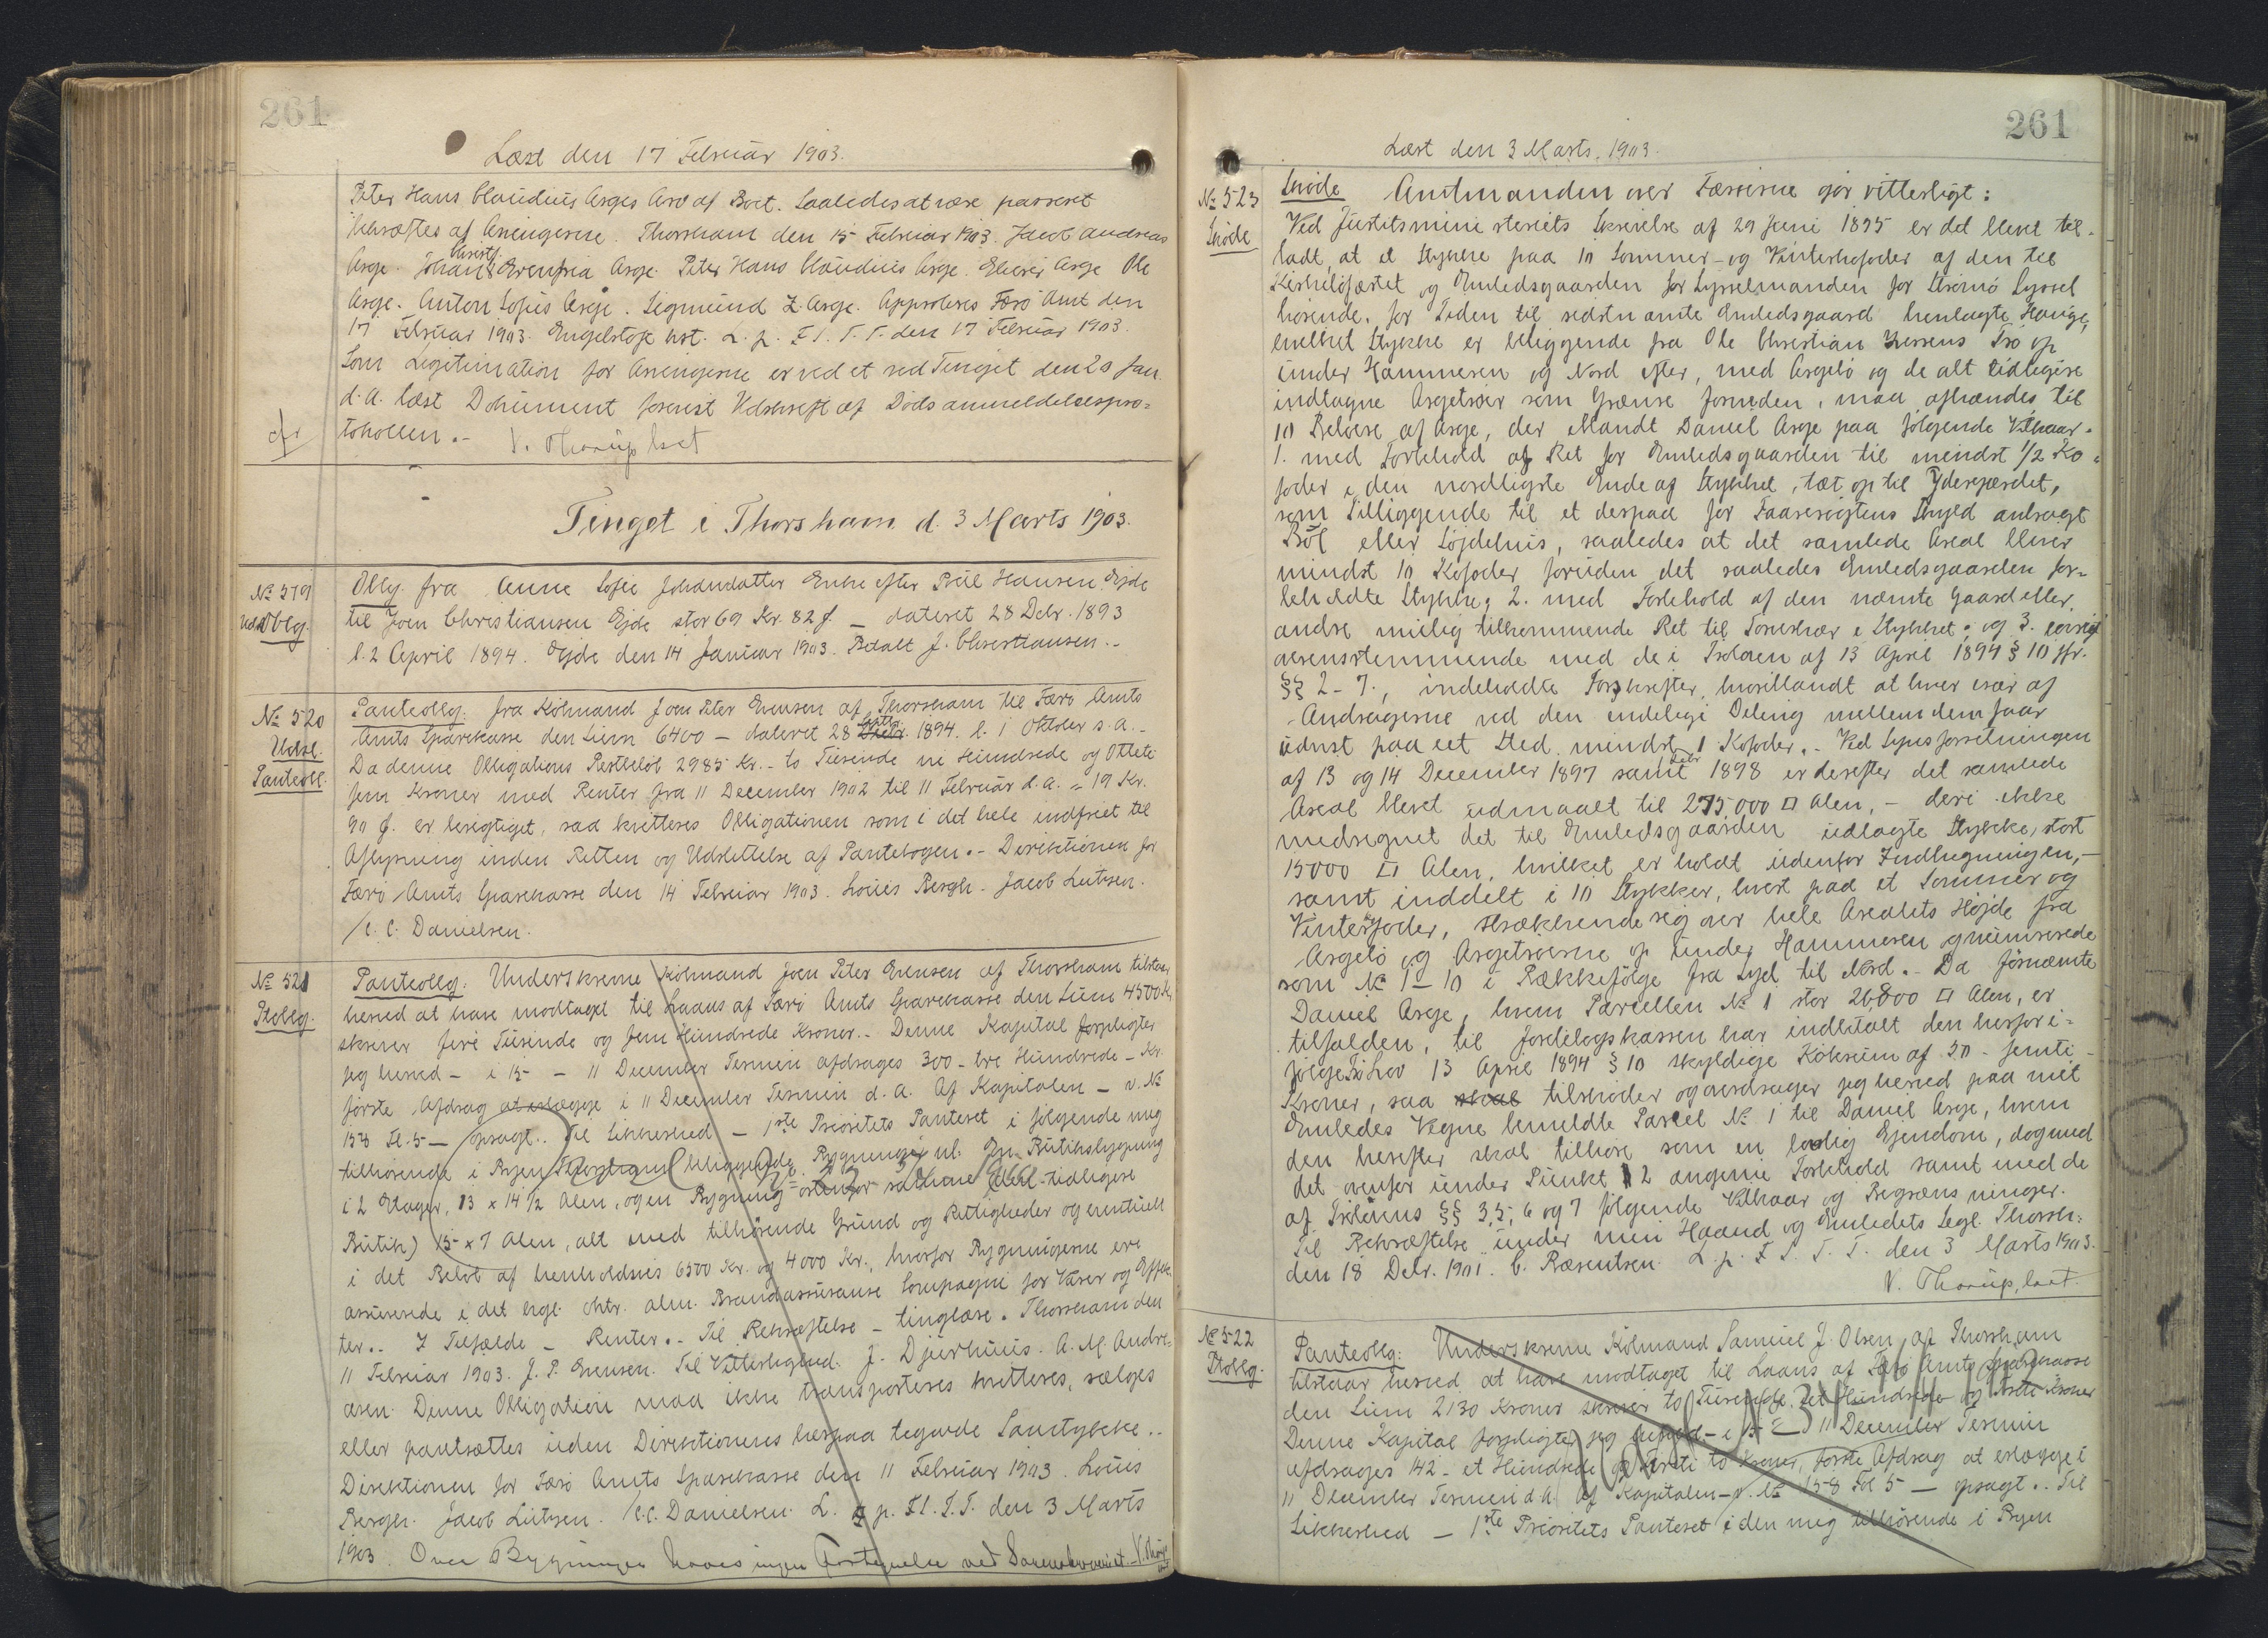 261
Læst den 17 Februar 1903.
Peter Hans Claudius Arges Arv af Boet. Saaledes at være passeret
bekræftes af Arvingerne. Thorshavn den 15 Februar 1903. Jacob Andreas
Arge. Johan Christf. Evenfria Arge. Peter Hans Claudius Arge. Elieser Arge Ole
Arge. Anton Sofus Arge. Sigmund Z. Arge. Approberes Færø Amt den
17 Februar 1903. Engelstoft kst. L. p. F S. T. T. den 17 Februar 1903.
Som Legitimation for Arvingerne er ved et ved Tinget den 20 Jan.
d. A. læst Dokument forevist Udskrift af Dødsanmeldelsespro=
tokollen. - V. Thorup kst
Tinget i Thorshavn d. 3 Marts 1903.
№ 519
Udsl. Oblg.
Oblg. fra Anne Sofie Johansdatter Enke efter Poul Hansen Ejde
til Joen Christiansen Ejde stor 69 Kr. 82 f. - dateret 28 Debr. 1893
l. 2 April 1894. Ejde den 14 Januar 1903. Betalt J. Christiansen. -
№ 520
Udsl.
Panteobl.
Panteoblg. fra Købmand Joen Peter Evensen af Thorshavn til Færø Amts
Amts Sparekasse den Sum 6400 - dateret 28 Septb. 1894. l. 1 Oktober s. a. -
Da denne Obligations Restbeløb 2985 Kr. - to Tusinde ni Hundrede og Ottete
fem Kroner med Renter fra 11 December 1902 til 11 Februar d. a. = 19 Kr.
90 f. er berigtiget, saa kvitteres Obligationen som i det hele indfriet til
Aflysning inden Retten og Udslettelse af Pantebogen. - Direktionen for
Færø Amts Sparekasse den 14 Februar 1903. Louis Bergh. Jacob Lützen.
/C. C. Danielsen.
№ 521
Ptoblg.
Panteoblg. Underskrevne Købmand Joen Peter Evensen af Thorshavn tilstaar
herved at have modtaget til Laans af Færø Amts Sparekasse den Sum 4500 Kr
skriver fire Tusinde og fem Hundrede Kroner. - Denne Kapital forpligter
jeg herved - i 15 - 11 December Termin afdrages 300 - tre Hundrede - Kr.
første Afdrag at erlægge i 11 December Termin d. a. Af Kapitalen - v. №
158 Fl. 5 - opsagt. . Til Sikkerhed - 1ste Prioritets Panteret i følgende mig
tilhørende i Byen Thorshavn beliggende Bygninger nl. En Butiksbygning
i 2 Etager, 13 x 14 1/2 Alen, og en Bygning østenfor samme (tidligere
Butik) 15 x 7 Alen, alt med tilhørende Grund og Rettigheder og eventuell
i det Beløb af henholdsvis 6500 Kr. og 4000 Kr., hvorfor Bygningerne ere
assurerede i det kgl. oktr. alm. Brandassurance Compagni for Varer og Effek
ter. - I Tilfælde - Renter. - Til Bekræftelse - tinglæse. Thorshavn den
11 Februar 1903. J. P. Evensen. Til Vitterlighed. J. Djurhuus. A. M. Andre=
asen. Denne Obligation maa ikke transporteres kvitteres, sælges
eller pantsættes uden Direktionens herpaa tegnede Samtykke. .
Direktionen for Færø Amts Sparekasse den 11 Februar 1903. Louis
Bergh. Jacob Lützen. /C. C. Danielsen. L. p. F S. T. T. den 3 Marts
1903. Over Bygningen haves ingen Fortegnelse ved Sorenskriveriet. V. Thorup
kst
261
Læst den 3 Marts. 1903.
№ 523
Skøde
Skøde Amtmanden over Færøerne gør vitterligt:
Ved Justitsministeriets Skrivelse af 29 Juni 1895 er det blevet til=
ladt, at et Stykke paa 10 Sommer- og Vinterkofoder af den til
Kirkebøfærtet og Embedsgaarden for Sysselmanden for Strømø Syssel
hørende, for Tiden til sidstnævnte Embedsgaard henlagte Hauge,
hvilket Stykke er beliggende fra Ole Christian Jessens Trø op
under Hammeren og Nord efter, med Argebø og de alt tidligere
indtagne Argetrøer som Grænse forneden, maa afhændes til
10 Beboere af Arge, der iblandt Daniel Arge paa følgende Vilkaar.
1. med Forbehold af Ret for Embedsgaarden til mindst 1/2 Ko=
foder i den nordligste Ende af Stykket, tæt op til Ydergærdet,
som Tilliggende til et derpaa for Faarerøgtens Skyld anbragt
Ból eller Løjdehus, saaledes at det samlede Areal bliver
mindst 10 Kofoder foruden det saaledes Embedsgaarden for=
beholdte Stykke; 2. med Forbehold af den nævnte Gaard eller
andre mulig tilkommende Ret til Torveskær i Stykket; og 3. iøvrigt
overensstemmende med de i Troloven af 13 April 1894 § 10 jfr.
§§ 2-7., indeholdte Forskrifter, hvoriblandt at hver især af
Andragerne ved den endelige Deling mellem dem faar
udvist paa eet Sted mindst 1 Kofoder. - Ved Synsforretningen
af 13 og 14 December 1897 samt Debr 1898 er derefter det samlede
Areal blevet udmaalt til 275,000 □ Alen, - deri ikke
medregnet det til Embedsgaarden udlagte Stykke, stort
15000 □ Alen, hvilket er holdt udenfor Indhegningen, -
samt inddelt i 10 Stykker, hvert paa et Sommer og
Vinterfoder, strækkende sig over hele Arealets Højde fra
Argebø og Argetrøerne op under Hammeren og numererede
som № 1-10 i Rækkefølge fra Syd til Nord. - Da fornævnte
Daniel Arge, hvem Parcellen № 1 stor 26,800 □ Alen, er
tilfalden, til Jordebogskassen har indbetalt den herfor i=
følge Trø Lov 13 April 1894 § 10 skyldige Købesum af 50 - femti
Kroner, saa tilskøder og overdrager jeg herved paa mit
Embedes Vegne bemeldte Parcel № 1 til Daniel Arge, hvem
den herefter skal tilhøre som en lovlig Ejendom, dog med
det ovenfor under Punkt 2 angivne Forbehold samt med de
af Trølovens §§ 3, 5, 6 og 7 følgende Vilkaar og Begrænsninger.
Til Bekræftelse under min Haand og Embedets Segl. Thorsh:
den 18 Debr. 1901. C. Bærentsen. L. p. F S. T. T. den 3 Marts 1903.
V. Thorup, kst.
№ 522
Ptoblg.
Panteoblg: Underskrevne Købmand Samuel J. Olsen af Thorshavn
tilstaar herved at have modtaget til Laans af Færø Amts Sparekasse
den Sum 2130 Kroner skriver to Tusinde et Hundrede og treti Kroner
Denne Kapital forpligter jeg herved - i 15 - 11 December Termin
afdrages 142 - et Hundrede og Firti to Kroner, første Afdrag at erlægge i
11 December Termin d. A. Af Kapitalen - v. № 158 Fol 5 - opsagt. . Til
Sikkerhed - 1ste Prioritets Panteret i den mig tilhørende i Byen